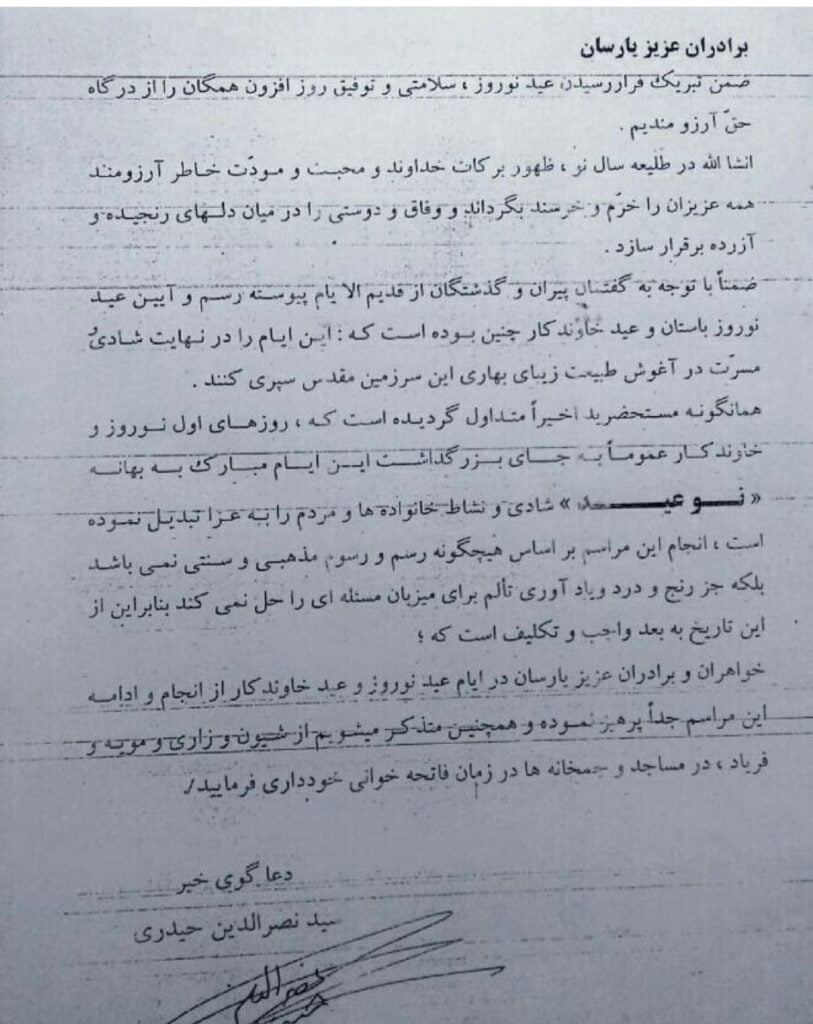 برادران عزیز یارسان
ضمن تبریک فرا رسیدن عید نوروز ، سلامتی و توفیق روز افزون همگان را از درگاه
حقّ آرزو مندیم .
انشا الله در طلیعه سال نو ، ظهور برکات خداوند و محبت و مودّت خاطر آرزومند
همه عزیزان را خرّم و خرسند بگرداند و وفاق و دوستی را در میان دلهای رنجیده و
آزرده برقرار سازد .
ضمناً با توجه به گفتمان پیران و گذشتگان از قدیم الا یام پیوسته رسم و آیین عید
نوروز باستان و عید خاوندکار چنین بوده است که : این ایام را در نهایت شادی و
مسرّت در آغوش طبیعت زیبای بهاری این سرزمین مقدس سپری کنند .
همانگونه مستحضرید اخیراً متداول گردیده است که ، روزهای اول نوروز و
خاوندکار عموماً به جای بزرگداشت این ایام مبارک به بهانه
« نو عید » شادی و نشاط خانواده ها و مردم را به عزا تبدیل نموده
است ، انجام این مراسم بر اساس هیچگونه رسم و رسوم مذهبی و سنتی نمی باشد
بلکه جز رنج و درد ویاد آوری تألم برای میزبان مسئله ای را حل نمی کند بنابراین از
این تاریخ به بعد واجب و تکلیف است که ؛
خواهران و برادران عزیز یارسان در ایام عید نوروز و عید خاوندکار از انجام و ادامه
این مراسم جداً پرهیز نموده و همچنین متذکر میشویم از شیون و زاری و مویه و
فریاد ، در مساجد و جمخانه ها در زمان فاتحه خوانی خودداری فرمایید/.
دعا گوی خیر
سید نصرالدین حیدری